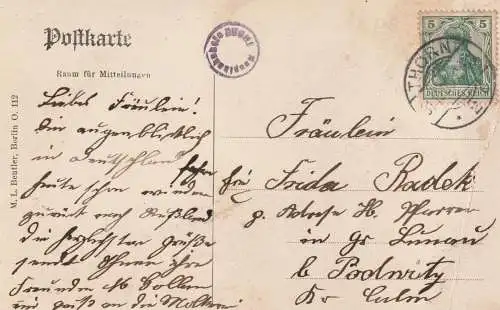 Postkarte
Raum für Mitteilungen
M. L. Beutler, Berlin O. 112
5 5
DEUTSCHES REICH
THORN
Liebes Fräulein!
Bin augenblicklich
in Deutschland fahre
heute schon wieder
zurück nach Rußland
die herzlichsten Grüße
sendet Ihnen ihre
Freundin
ein Gruß an die
Fräulein
Frida Radek
p. Adresse H. Pfarrer
in Gr Lunau
b Podwitz
Kr Culm